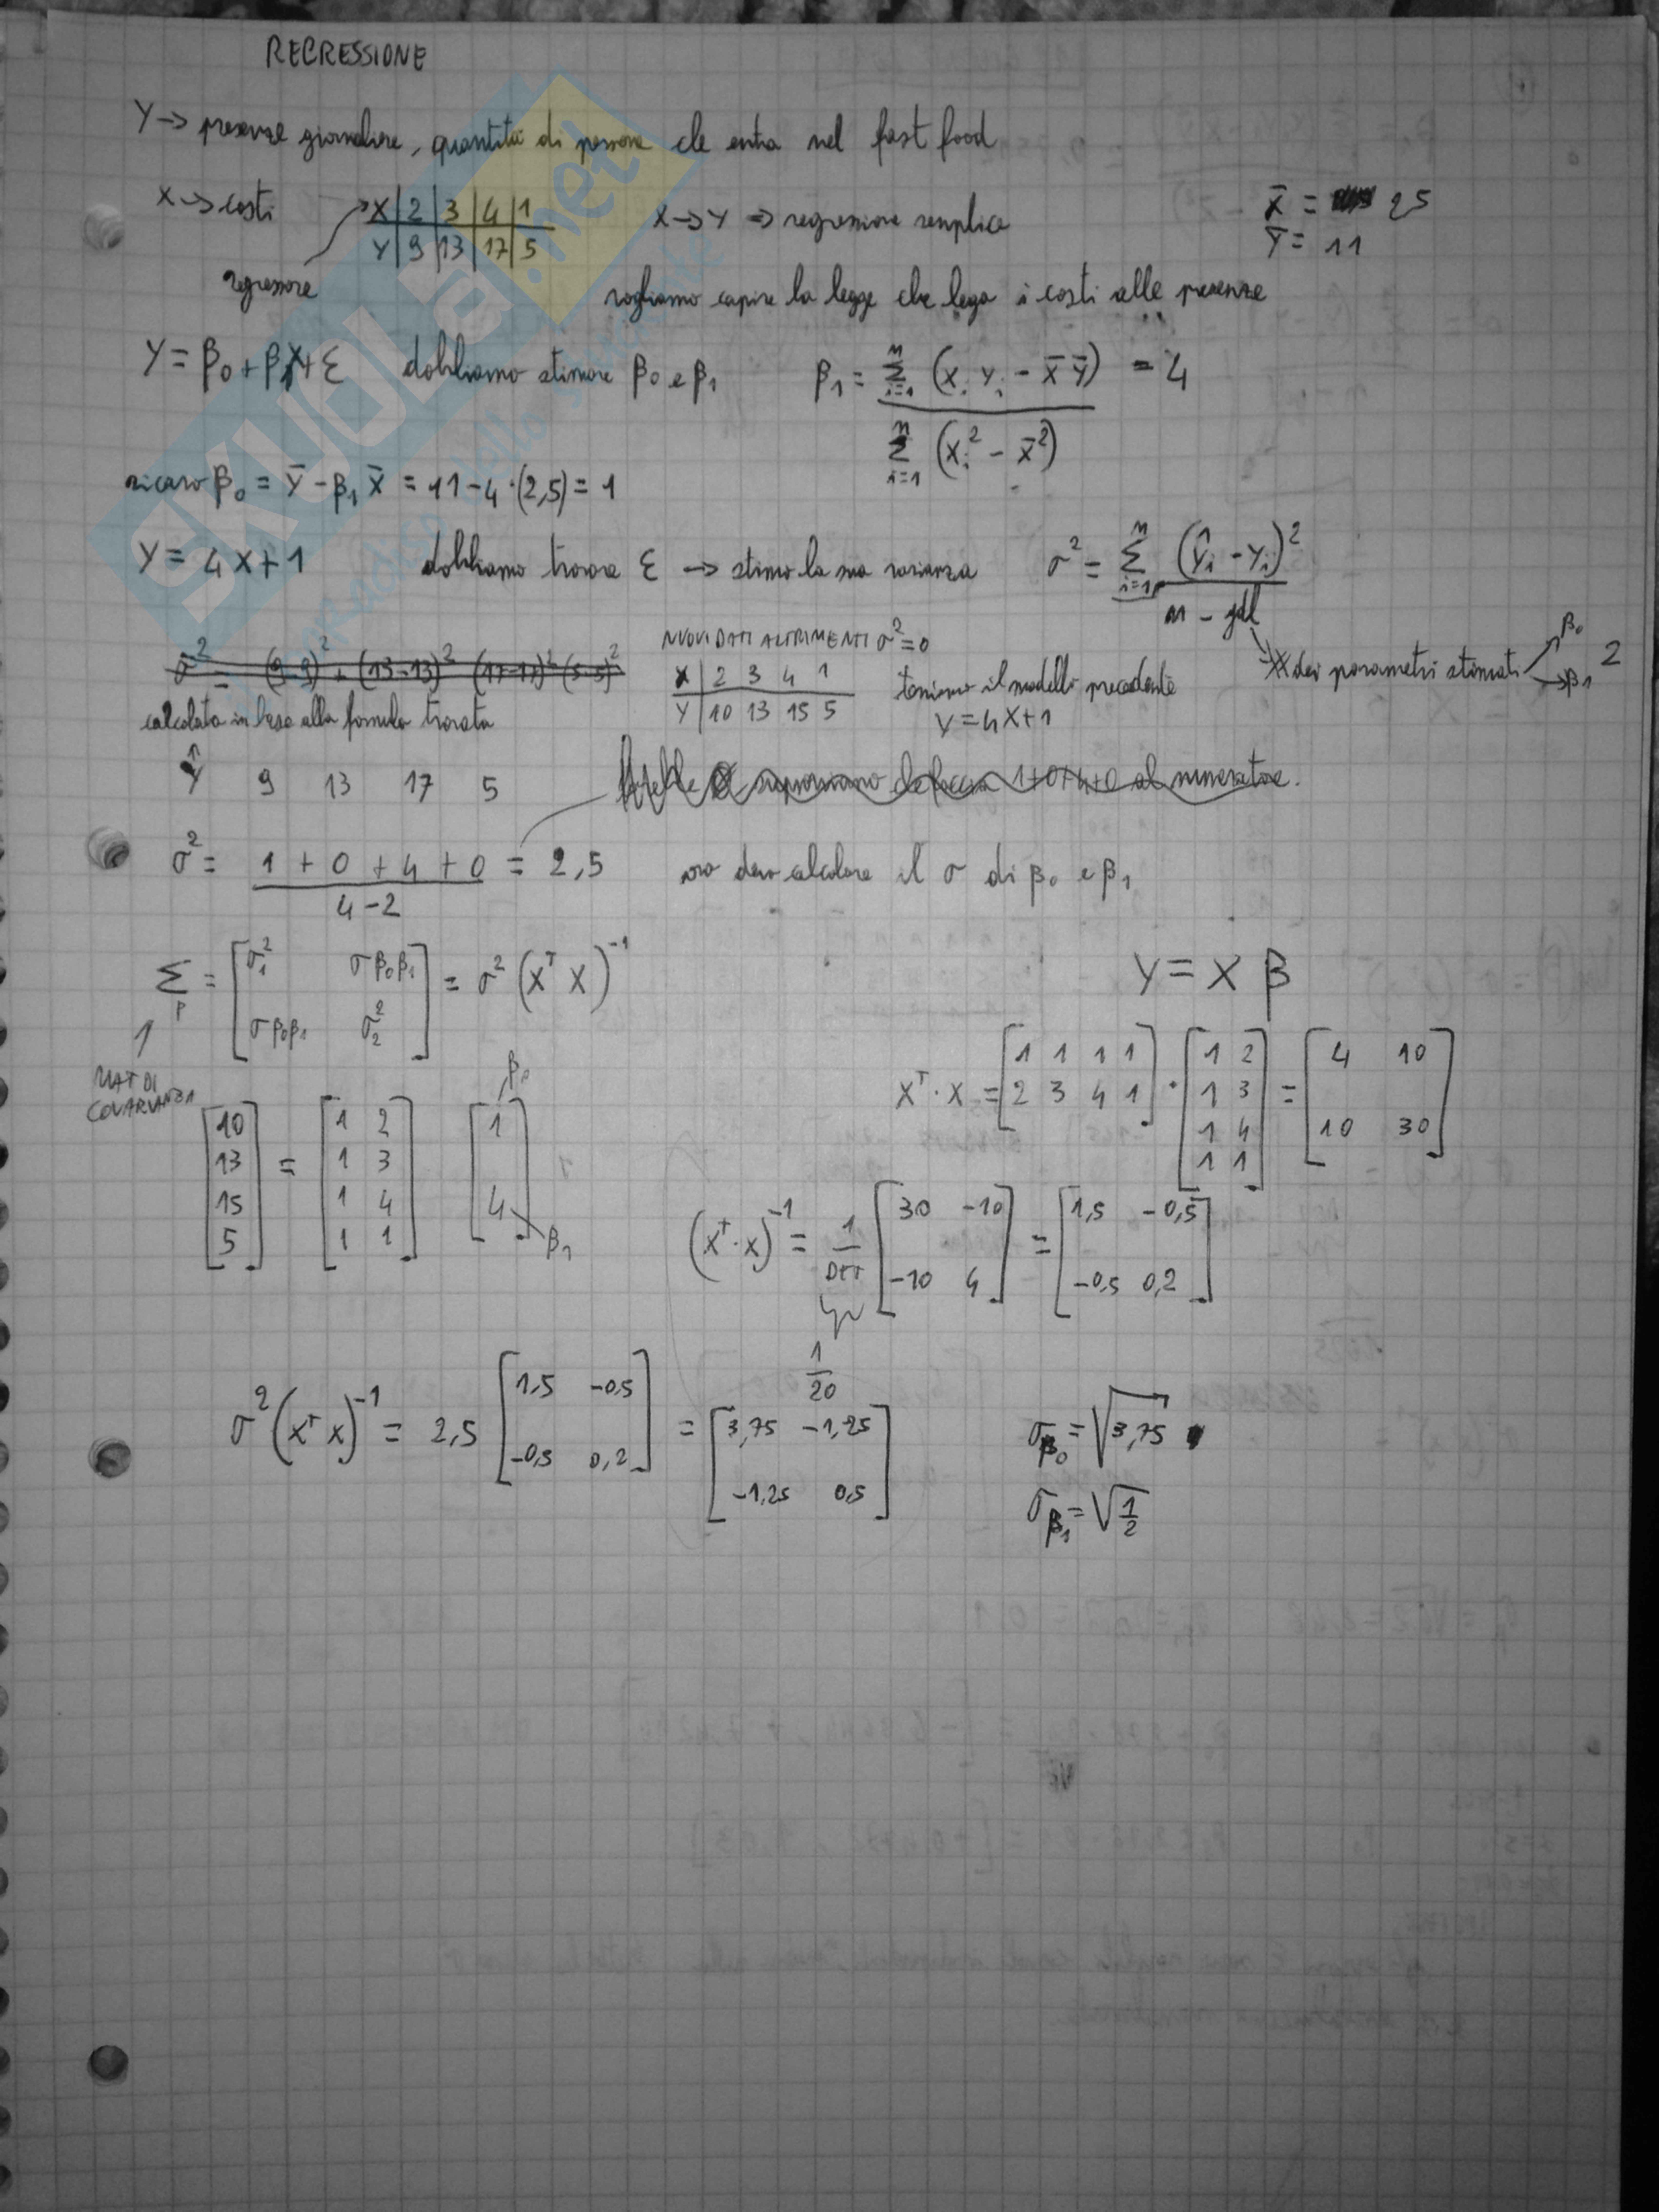 REGRESSIONE
Y → presenze giornaliere, quantità di persone che entra nel fast food
X → costi
X | 2 | 3 | 4 | 1
Y | 9 | 13 | 17 | 5
regressore
X → Y ⇒ regressione semplice
X̄ = 25
Ȳ = 11
vogliamo capire la legge che lega i costi alle presenze
Y = β₀ + β₁X + ε dobbiamo stimare β₀ e β₁ β₁ = Σⁿᵢ₌₁ (xᵢ yᵢ - x̄ ȳ) / Σⁿᵢ₌₁ (xᵢ² - x̄²) = 4
ricavo β₀ = ȳ - β₁ x̄ = 11 - 4 · (2,5) = 1
Y = 4X + 1 dobbiamo trovare ε → stimo la sua varianza σ² = Σⁿᵢ₌₁ (ŷᵢ - yᵢ)² / n - gdl
# dei parametri stimati β₀ β₁ 2
σ² = (9-9)² + (13-13)² (17-17)² (5-5)²
NUOVI DATI ALTRIMENTI σ² = 0
X | 2 3 4 1
Y | 10 13 15 5
teniamo il modello precedente
Y = 4X + 1
calcolata in base alla formula trovata
Ŷ 9 13 17 5
1+0+4+0 al numeratore.
σ² = 1 + 0 + 4 + 0 / 4 - 2 = 2,5 ora devo calcolare il σ di β₀ e β₁
Σ_β = [σ₁² σβ₀β₁ ; σβ₀β₁ σ₂²] = σ² (Xᵀ X)⁻¹
Y = X β
MAT DI
COVARIANZA
[10 ; 13 ; 15 ; 5] = [1 2 ; 1 3 ; 1 4 ; 1 1] [1 ; 4] β₀ β₁
Xᵀ · X = [1 1 1 1 ; 2 3 4 1] · [1 2 ; 1 3 ; 1 4 ; 1 1] = [4 10 ; 10 30]
(Xᵀ · X)⁻¹ = 1/DET [30 -10 ; -10 4] = [1,5 -0,5 ; -0,5 0,2]
1/20
σ² (Xᵀ X)⁻¹ = 2,5 [1,5 -0,5 ; -0,5 0,2] = [3,75 -1,25 ; -1,25 0,5]
σ_β₀ = √3,75
σ_β₁ = √1/2
SKUOLA.net